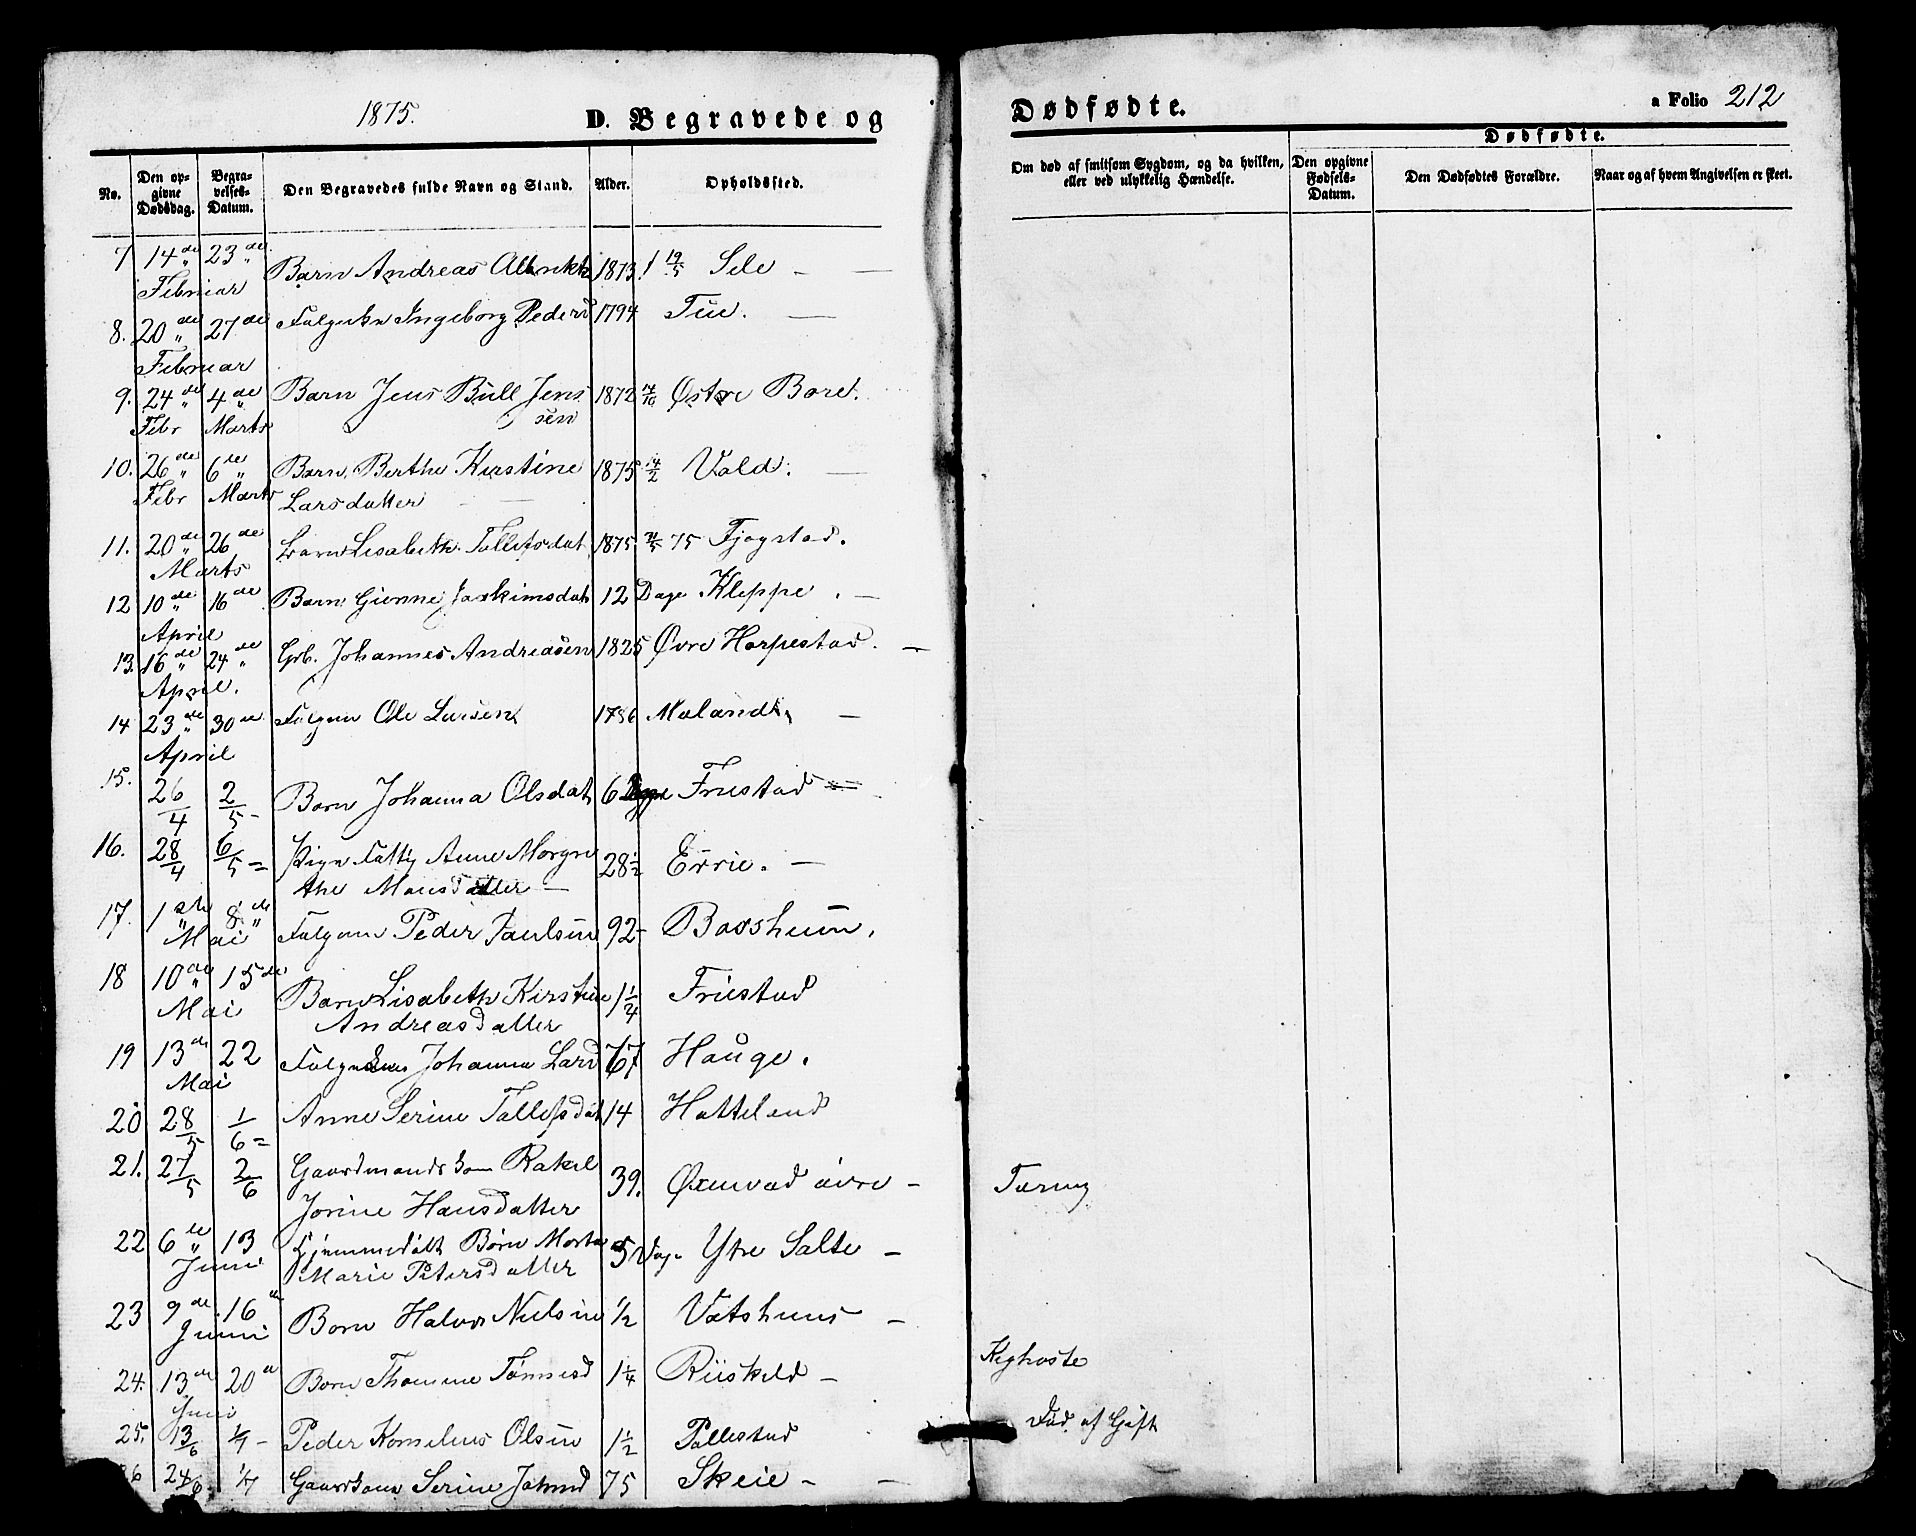 1875.
D. Begravede og
No.
Den op-
givne
Dødsdag.
Begra-
velses-
Datum.
Den Begravedes fulde Navn og Stand.
Alder.
Opholdssted.
7 14de 23de Barn Andreas 1873 19/5 Sele -
Februar
8. 20de 27de Ingeborg Peders 1794 Tue.
Februar
9. 24de 4de Barn Jens Bull Jens 1872 14/10 Østre Bore.
Febr Marts sen
10. 26de 6te Barn Berthe Kirstine 1875 14/2 Vold.
Febr Marts Larsdatter
11. 20de 26de Barn Lisabeth Tollefsdat 1875 75 Tjøgstad.
Marts
12 10de 16de Barn Joakimsdat 12 Dage Kleppe.
April
13. 16de 24de Grb. Johannes Andreasen 1825 Øvre Horpestad.
April.
14 23de 30te Ole Larsen 1786 Maland
April
15. 26/4 2/5 Barn Johanna Olsdat 6 Dage Friestad
16. 28/4 6/5 Anne Margre 28 1/2 Errie.
the Monsdatter
17. 1ste 8de Peder Paulsen 92 Boxshuun.
Mai
18 10de 15de Barn Lisabeth Kirstine 1 1/4 Friestad
Mai Andreasdatter
19 13de 22 Johanna Lars 67 Hauge.
Mai
20 28/5 1/6 Anne Serine Tollefsdat 14 Hatteland
21. 27/5 2/6 Gaardmands Kone Rakel 39. Øxnevad øvre -
Jorine Hansdatter
22 6te 13 Hjemmedøbt Børn Marta 5 Dage Ytre Salte -
Juni Marie Petersdatter
23 9de 16de Barn Halvor Nielsen 1/2 Vatshuus -
Juni
24. 13de 20de Barn Thomine Tønnesd 1 1/4 Riiskeld -
Juni
25. 13/6 1/7 - Peder Kornelius Olsen 1 1/2 Pollestad
26 24/6 1/7 Serine 75 Skeie -
Dødfødte.
a Folio 212
Om død af smitsom Sygdom, og da hvilken,
eller ved ulykkelig Hændelse.
Dødfødte.
Den opgivne
Fødsels-
Datum.
Den Dødfødtes Forældre.
Naar og af hvem Angivelsen er skeet.
Tæring
Kighoste
Død af Gift